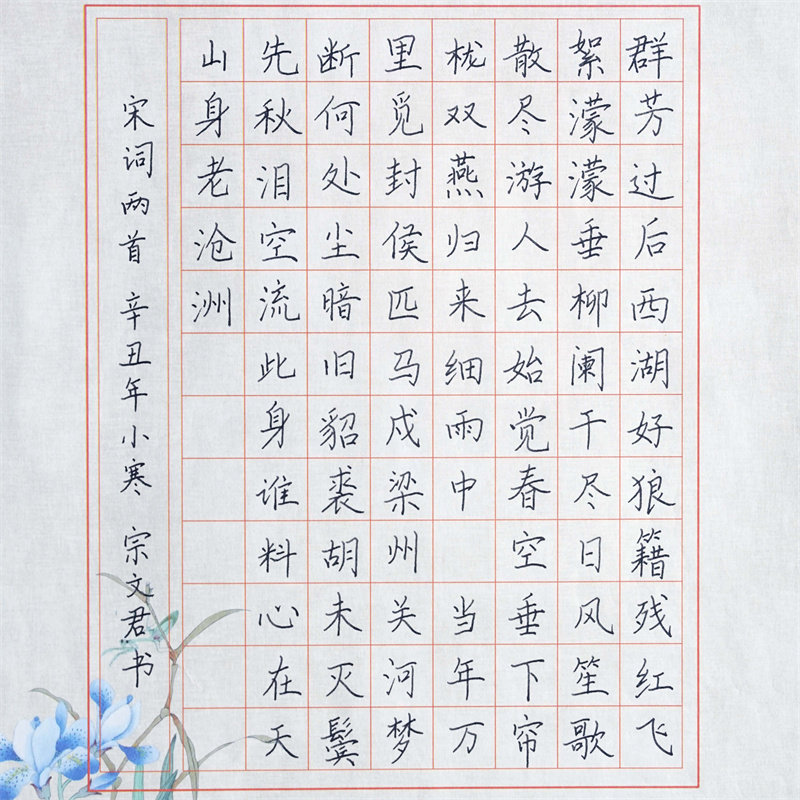 群芳过后西湖好狼籍残红飞
絮濛濛垂柳阑干尽日风笙歌
散尽游人去始觉春空垂下帘
栊双燕归来细雨中 当年万
里觅封侯匹马戍梁州关河梦
断何处尘暗旧貂裘胡未灭鬓
先秋泪空流此身谁料心在天
山身老沧洲
宋词两首 辛丑年小寒 宗文君书